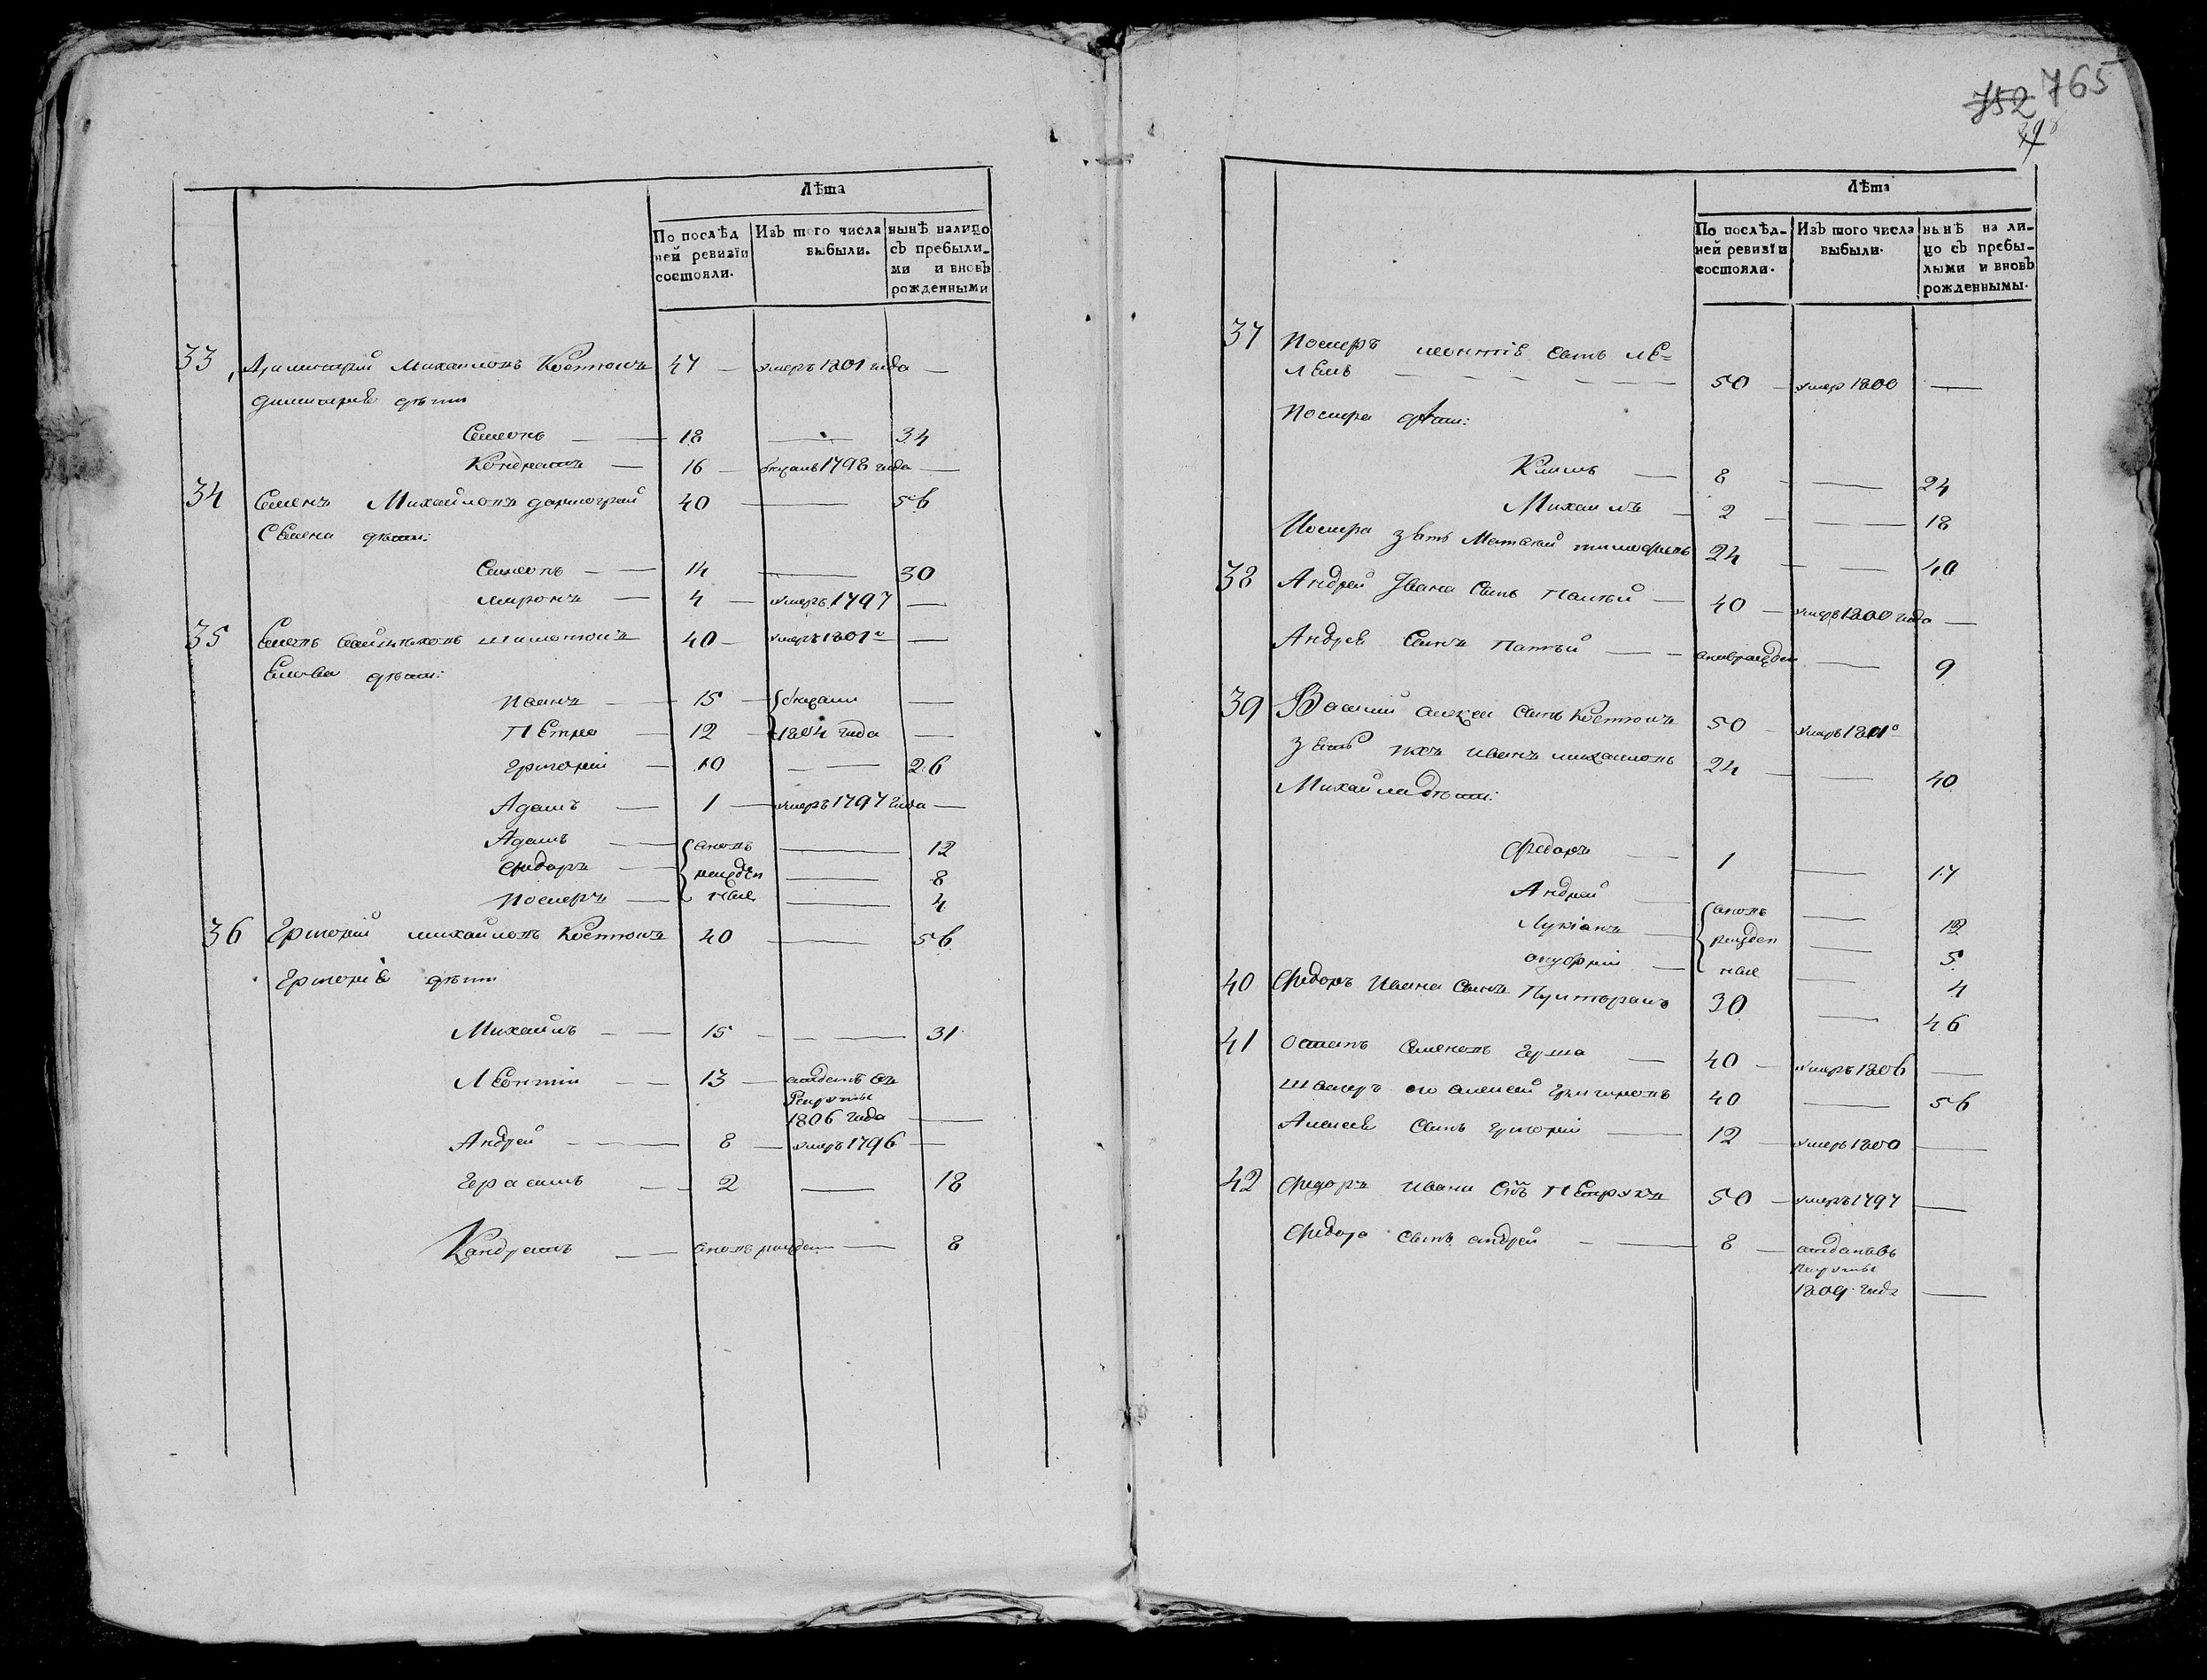 Лѣта
По послѣд
ней ревизіи
состояли.
Изъ того числа
выбыли.
нынѣ налицо
съ пребыли-
ми и вновь
рожденными
33 Димитрій Михаиловъ Костюкъ 47 — умеръ 1801 года —
Димитріе дѣти
Семенъ — 18 — 34
Кондратъ — 16 — 1798 года —
34 Семенъ Михайловъ 40 — 56
Семена дѣти:
Симеонъ — 14 — 30
миронъ — 4 — умеръ 1797 —
35 40 — умеръ 1801 —
дѣти:
15 —
Петро — 12 — 1804 года —
Григорій — 10 — — 26
Адамъ — 1 — умеръ 1797 года —
Адамъ — вновь — 12
Федоръ — рожден — 8
Иосиеръ — ные — 4
36 Григорій михайловъ Костюкъ 40 — 56
Григоріе дѣти
Михаилъ — 15 — — 31
Леонтій — 13 — отданъ въ
Рекруты
1806 года —
Андрей — 8 — умеръ 1796 —
Герасимъ — 2 — 18
Кандратъ — вновь рожден — 8
752 765
Лѣта
По послѣд-
ней ревизіи
состояли.
Изъ того числа
выбыли.
нынѣ на ли-
цо съ пребы-
лыми и вновь
рожденнымы.
37 Иосиеръ леонтіе сынъ
50 — умер 1800 —
Иосиера дѣти:
Климъ — 8 — 24
Михаилъ — 2 — 18
Иосиера зять Матвій тимофѣевъ 24 — 40
38 Андрей Ивана сынъ 40 — умеръ 1800 года —
Андрее сынъ — вноврожден — 9
39 Василій сынъ Костюкъ 50 — умеръ 1801
зять иванъ михаиловъ 24 — 40
Михайла дѣти:
Федоръ — 1 — 17
Андрей — вновь — 12
Лукіанъ — рожден — 5
онуфрій — ные — 4
40 Федоръ Ивана сынъ 30 — 46
41 остапъ семеновъ — 40 — умеръ 1806 —
шваеръ его алексей григоровъ 40 — 56
Алексее сынъ григорій — 12 — умеръ 1800 —
42 Федоръ ивана снъ Петрукъ 50 — умеръ 1797 —
Федора сынъ андрей — 8 — отданъ въ
Рекруты
1809 года —